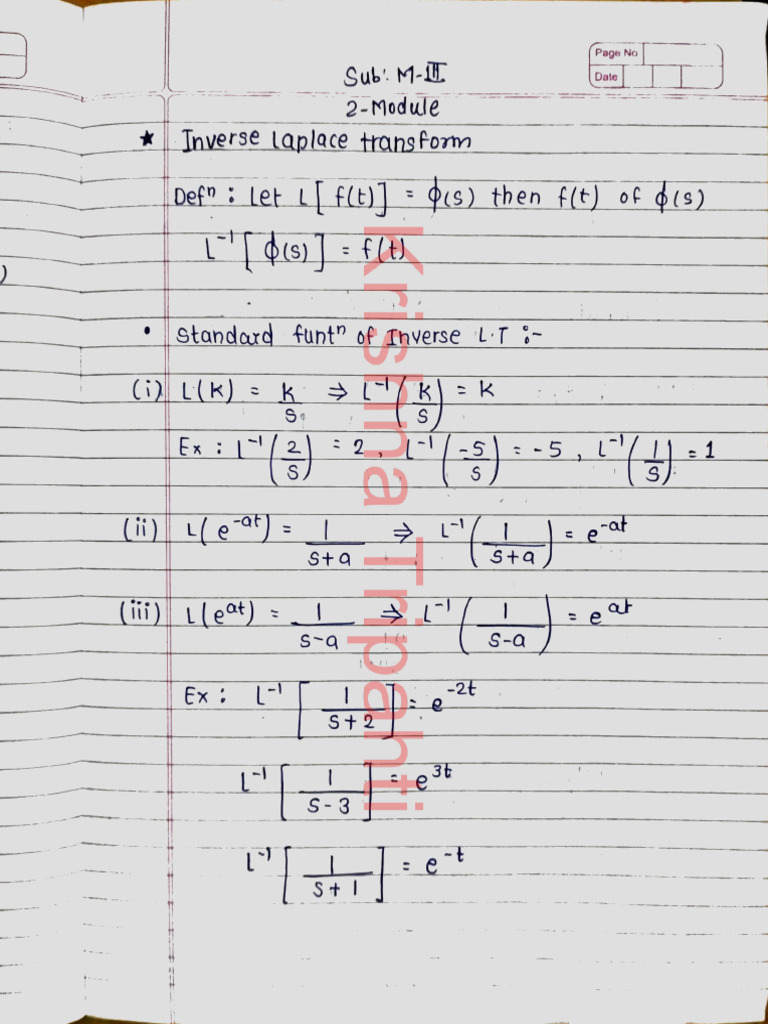 Page No
Date
Sub: M-III
2-Module
★ Inverse Laplace transform
Defⁿ : Let L[ f(t)] = ϕ(s) then f(t) of ϕ(s)
L⁻¹[ ϕ(s)] = f(t)
• Standard funtⁿ of Inverse L.T :-
(i) L(k) = k/s ⇒ L⁻¹(k/s) = k
Ex : L⁻¹(2/s) = 2 , L⁻¹(-5/s) = -5 , L⁻¹(1/s) = 1
(ii) L(e⁻ᵃᵗ) = 1/(s+a) ⇒ L⁻¹(1/(s+a)) = e⁻ᵃᵗ
(iii) L(eᵃᵗ) = 1/(s-a) ⇒ L⁻¹(1/(s-a)) = eᵃᵗ
Ex : L⁻¹[1/(s+2)] = e⁻²ᵗ
L⁻¹[1/(s-3)] = e³ᵗ
L⁻¹[1/(s+1)] = e⁻ᵗ
Krishna Tripahti